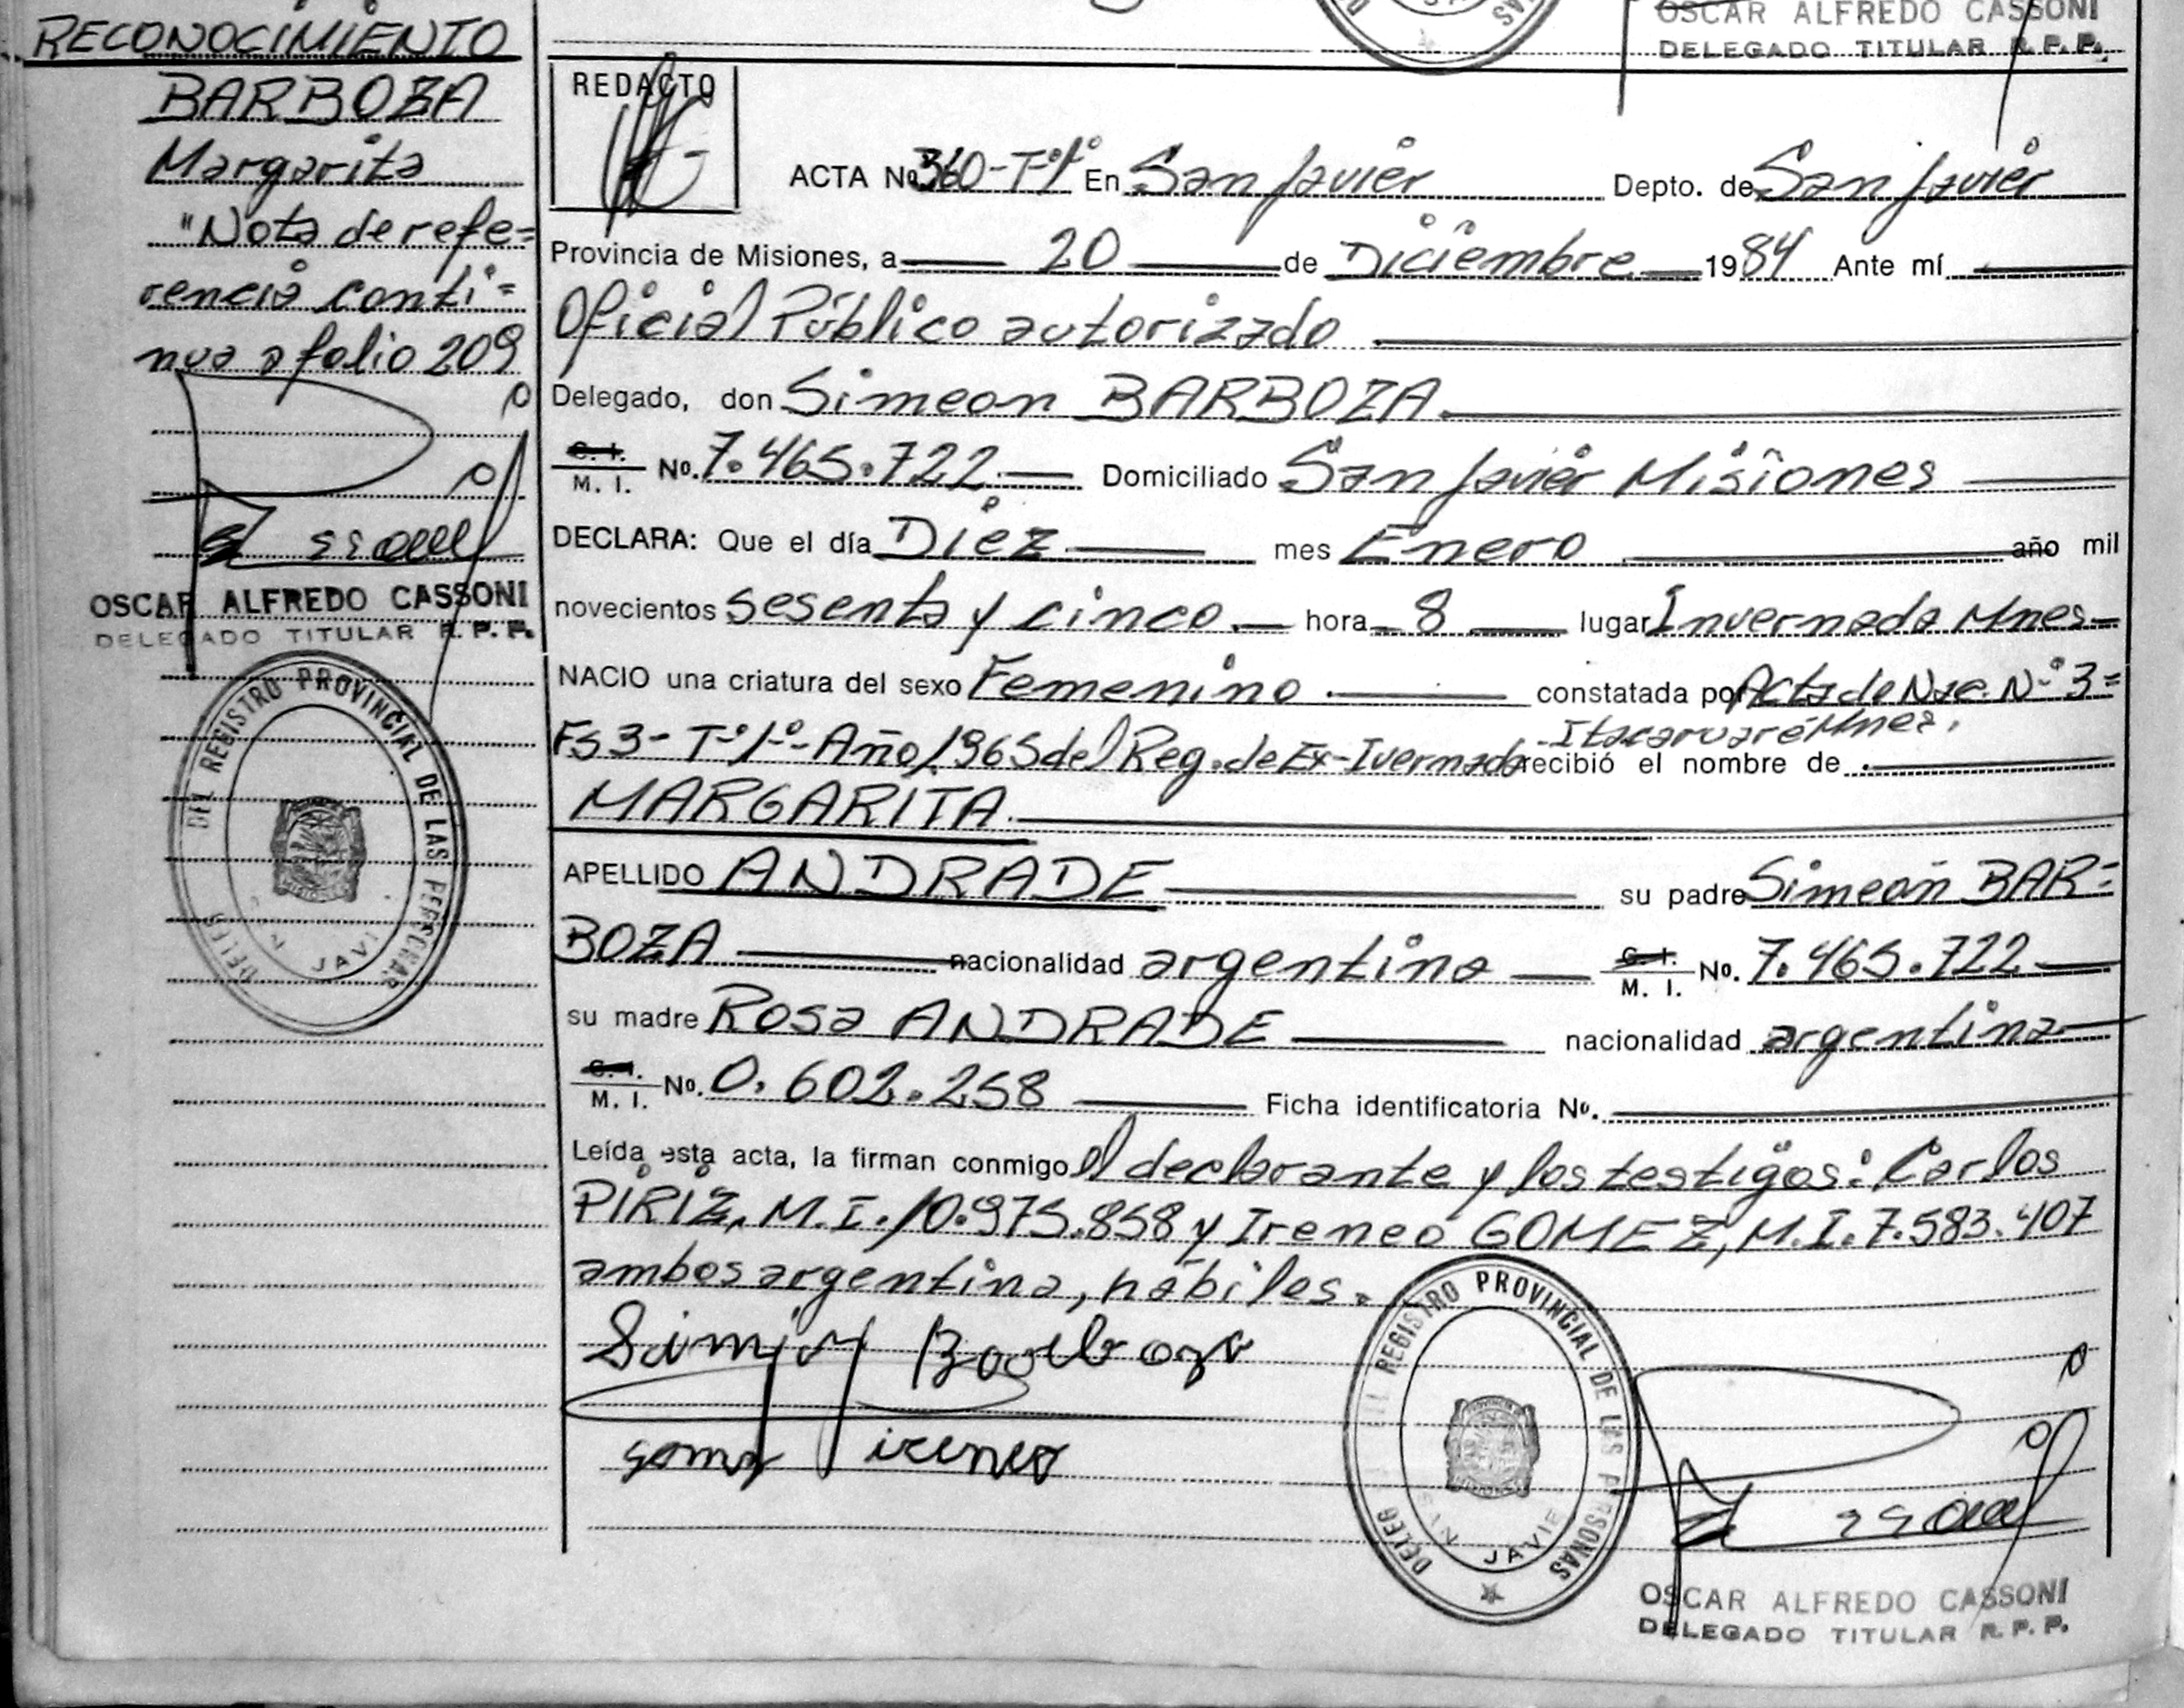 OSCAR ALFREDO CASSONI
DELEGADO TITULAR R. P. P.
RECONOCIMIENTO
BARBOZA
Margarita
"Nota de refe=
rencia conti=
nua a folio 209
OSCAR ALFREDO CASSONI
DELEGADO TITULAR R. P. P.
DEL REGISTRO PROVINCIAL DE LAS PERSONAS
REDACTO
ACTA No. 360-Tº1º En San Javier Depto. de San Javier
Provincia de Misiones, a 20 de Diciembre 1984 Ante mí
Oficial Público autorizado
Delegado, don Simeon BARBOZA
C. I.
M. I. No. 7.465.722 Domiciliado San Javier Misiones
DECLARA: Que el día Diez mes Enero año mil
novecientos sesenta y cinco hora 8 lugar Invernada Mnes
NACIO una criatura del sexo Femenino constatada por Acta de Nac. Nº 3=
Itacaruaré Mnes.
Fs 3- Tº1º- Año 1965 del Reg. de Ex-Ivernada recibió el nombre de
MARGARITA
APELLIDO ANDRADE su padre Simeón BAR=
BOZA nacionalidad argentina C. I.
M. I. No. 7.465.722
su madre Rosa ANDRADE nacionalidad argentina
C. I.
M. I. No. 0.602.258 Ficha identificatoria No.
Leída esta acta, la firman conmigo el declarante y los testigos: Carlos
PIRIZ, M.I. 10.975.858 y Ireneo GOMEZ, M.I. 7.583.407
ambos argentina, hábiles.
Barboza
gomez ireneo
DELEG DEL REGISTRO PROVINCIAL DE LAS PERSONAS
SAN JAVIE
OSCAR ALFREDO CASSONI
DELEGADO TITULAR R. P. P.